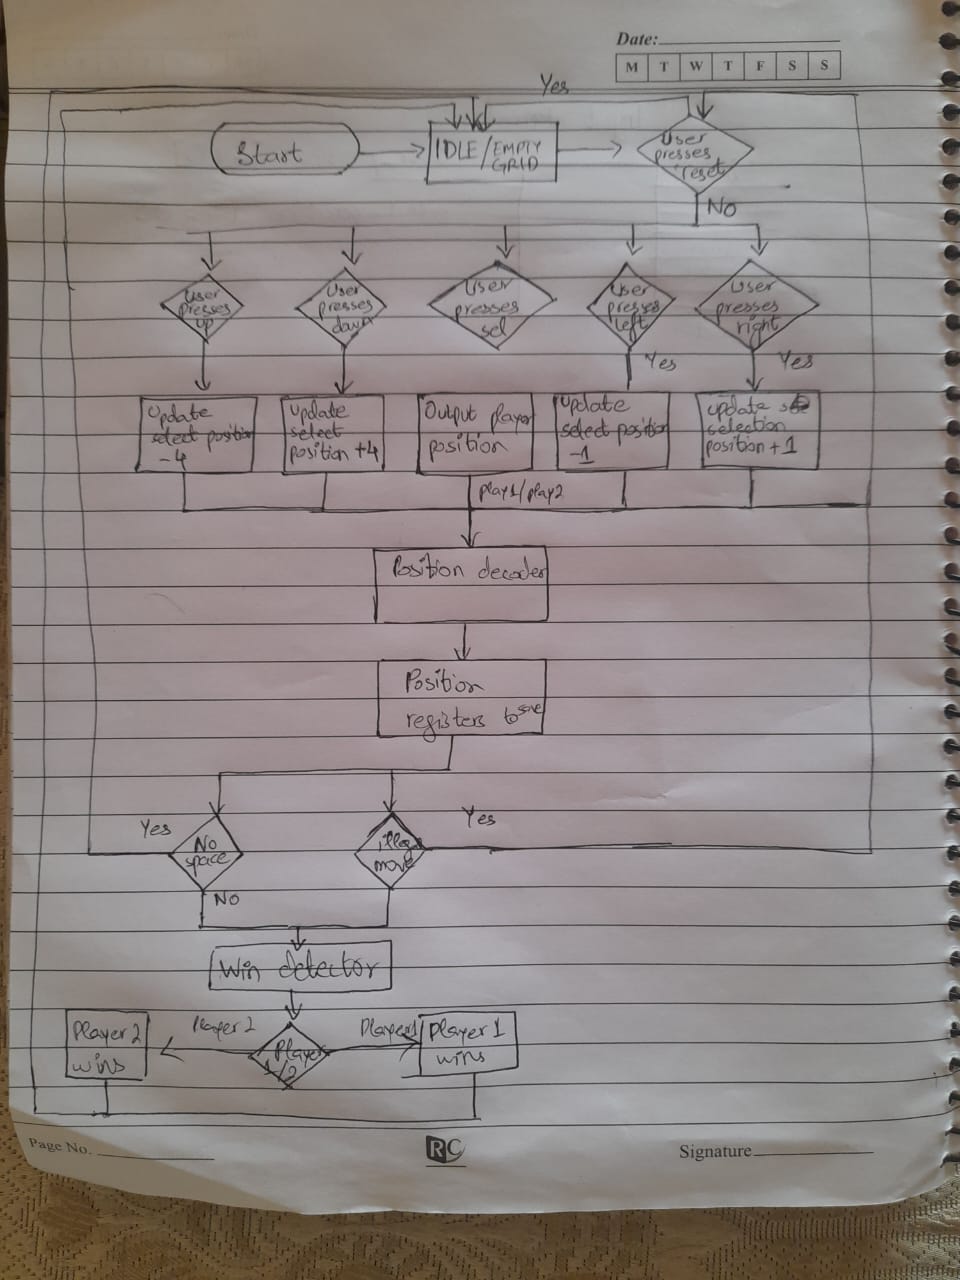 Date:
M T W T F S S
Yes
Start
IDLE/EMPTY
GRID
User
presses
reset
No
User
presses
up
User
presses
down
User
presses
sel
User
presses
left
User
presses
right
Yes
Yes
Update
select position
-4
Update
select
position +4
Output player
position
Update
select position
-1
update
selection
position +1
play1/play2
Position decoder
Position
registers to save
Yes
No
space
illegal
move
Yes
No
Win detector
Player 2
wins
Player 2
Player
1/2
Player1
Player 1
wins
Page No.
RC
Signature